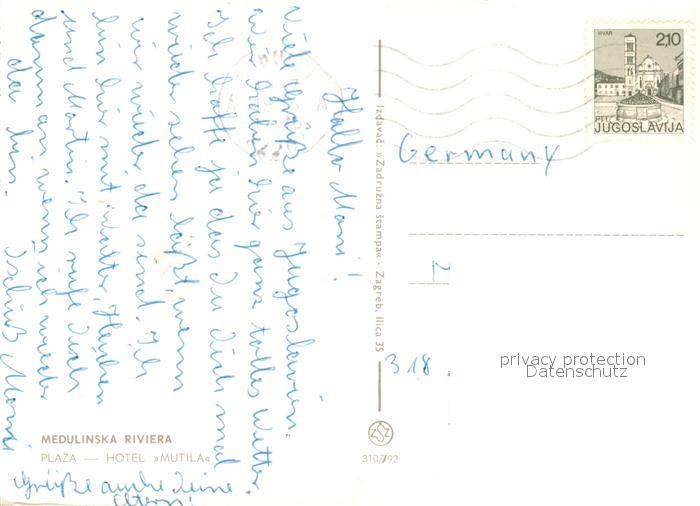 Hallo Moni!
Viele Grüße aus Jugoslavien.
Wir haben hier ganz tolles Wetter.
Ich hoffe ja das Du Dich mal
wieder sehen läßt, wenn
wir wieder da sind. Ich
bin hier mit Walter,
und Martin. Ich rufe Dich
dann an wenn ich wieder
da bin. Tschüß Moni
Grüße auch Deine
Eltern!
MEDULINSKA RIVIERA
PLAŽA — HOTEL »MUTILA«
Izdavač: »Zadružna štampa« - Zagreb, Ilica 35
ZSZ
3107/92
HVAR
2,10
PTT
JUGOSLAVIJA
Germany
318
privacy protection
Datenschutz